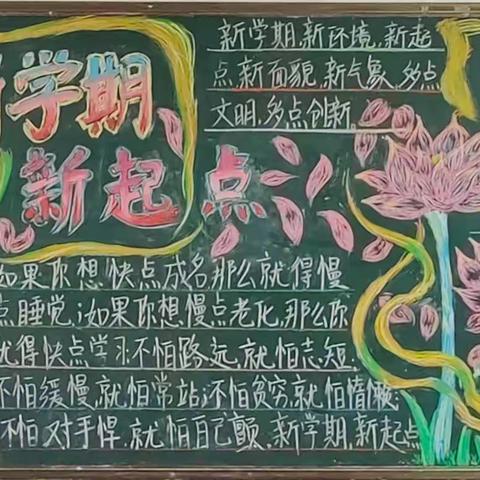 新学期
新起点
新学期,新环境,新起
点,新面貌,新气象,多点
文明,多点创新。
如果你想快点成名,那么就得慢
点睡觉;如果你想慢点老化,那么你
就得快点学习;不怕路远,就怕志短;
不怕缓慢,就怕常站;不怕贫穷,就怕惰懒;
不怕对手悍,就怕自己颤。新学期,新起点